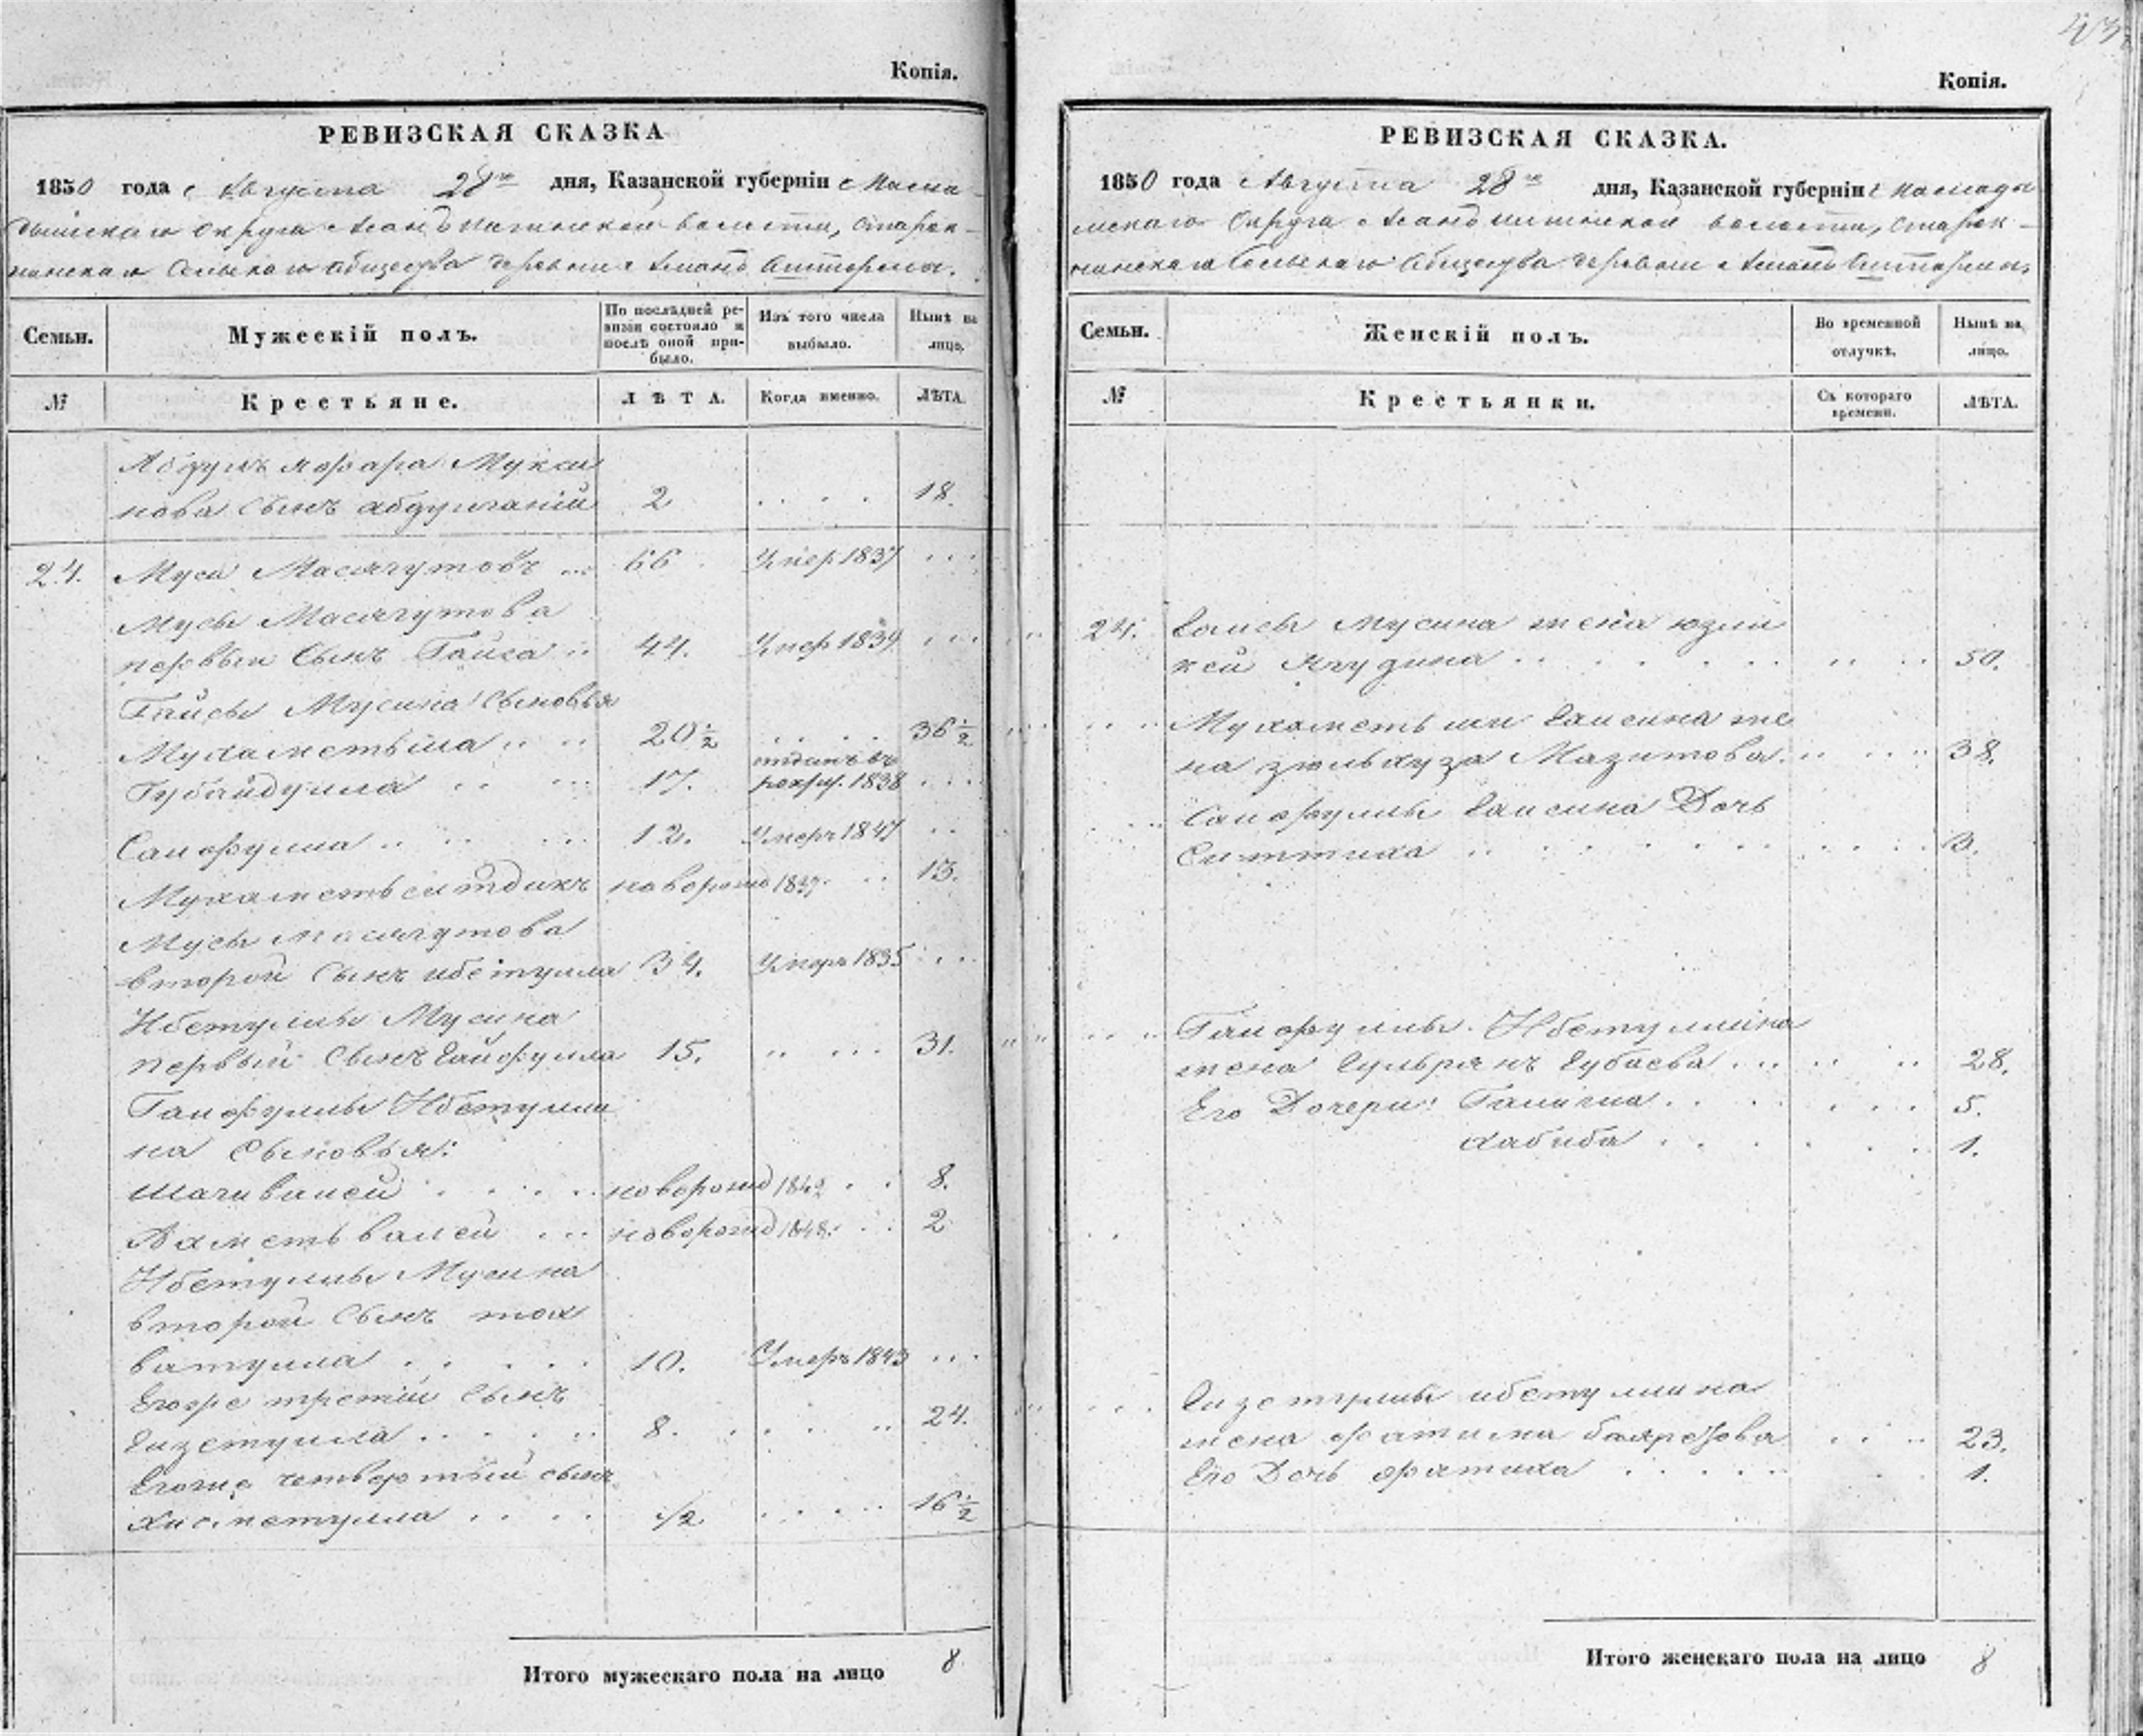 43
Копія.
РЕВИЗСКАЯ СКАЗКА
1850 года Августа 28го дня, Казанской губерніи Мама
дышскаго округа волости,
Сельскаго общества деревни
Семьи.
Мужескій полъ.
По послѣдней ре-
визіи состояло и
послѣ оной при-
было.
Изъ того числа
выбыло.
Нынѣ на
лицо.
№
Крестьяне.
ЛѢТА.
Когда именно.
ЛѢТА.
Абдулъ Мукси
нова сынъ 2 18.
24. Муса Масягутовъ 66 Умер 1837
Мусы Масягутова
первый сынъ Гайса 44. Умер 1839
Гайсы Мусина сыновья
Мухаметьша 20 1/2 36 1/2
отданъ въ
Губайдулла 17. рекру. 1838
Сайфулла 12. Умеръ 1847
Мухаметьситдикъ наворожд 1837 13.
Мусы Масягутова
второй сынъ ибетулла 34. Умеръ 1835
Ибетуллы Мусина
первый сынъ Гайфулла 15. 31.
Гайфуллы Ибетулли
на сыновья:
Шагивалей новорожд 1842 8.
Ахметьвалей новорожд 1848 2
Ибетуллы Мусина
второй сынъ тох
ватулла 10. Умеръ 1843
Егоже третій сынъ
Гизетулла 8. 24.
Егоже четвертый сынъ
Хисметулла 1/2 16 1/2
Итого мужескаго пола на лицо 8
Копія.
РЕВИЗСКАЯ СКАЗКА.
1850 года Августа 28го дня, Казанской губерніи Мамады
шскаго Округа волости,
Сельскаго Общества деревни
Семьи.
Женскій полъ.
Во временной
отлучкѣ.
Нынѣ на
лицо.
№
Крестьянки.
Съ котораго
времени.
ЛѢТА.
24. Гайсы Мусина жена юзли
кей Ягудина 50.
Мухаметьши Гайсина же
на зюльхуза Мазитова 38.
Сайфуллы Гайсина Дочь
Ситтика 3.
Гайфуллы Ибетуллина
жена Губаева 28.
Его Дочери: Галима 5.
Хабиба 1.
Гизетуллы ибетуллина
жена фатима 23.
Его Дочь фатиха 1.
Итого женскаго пола на лицо 8